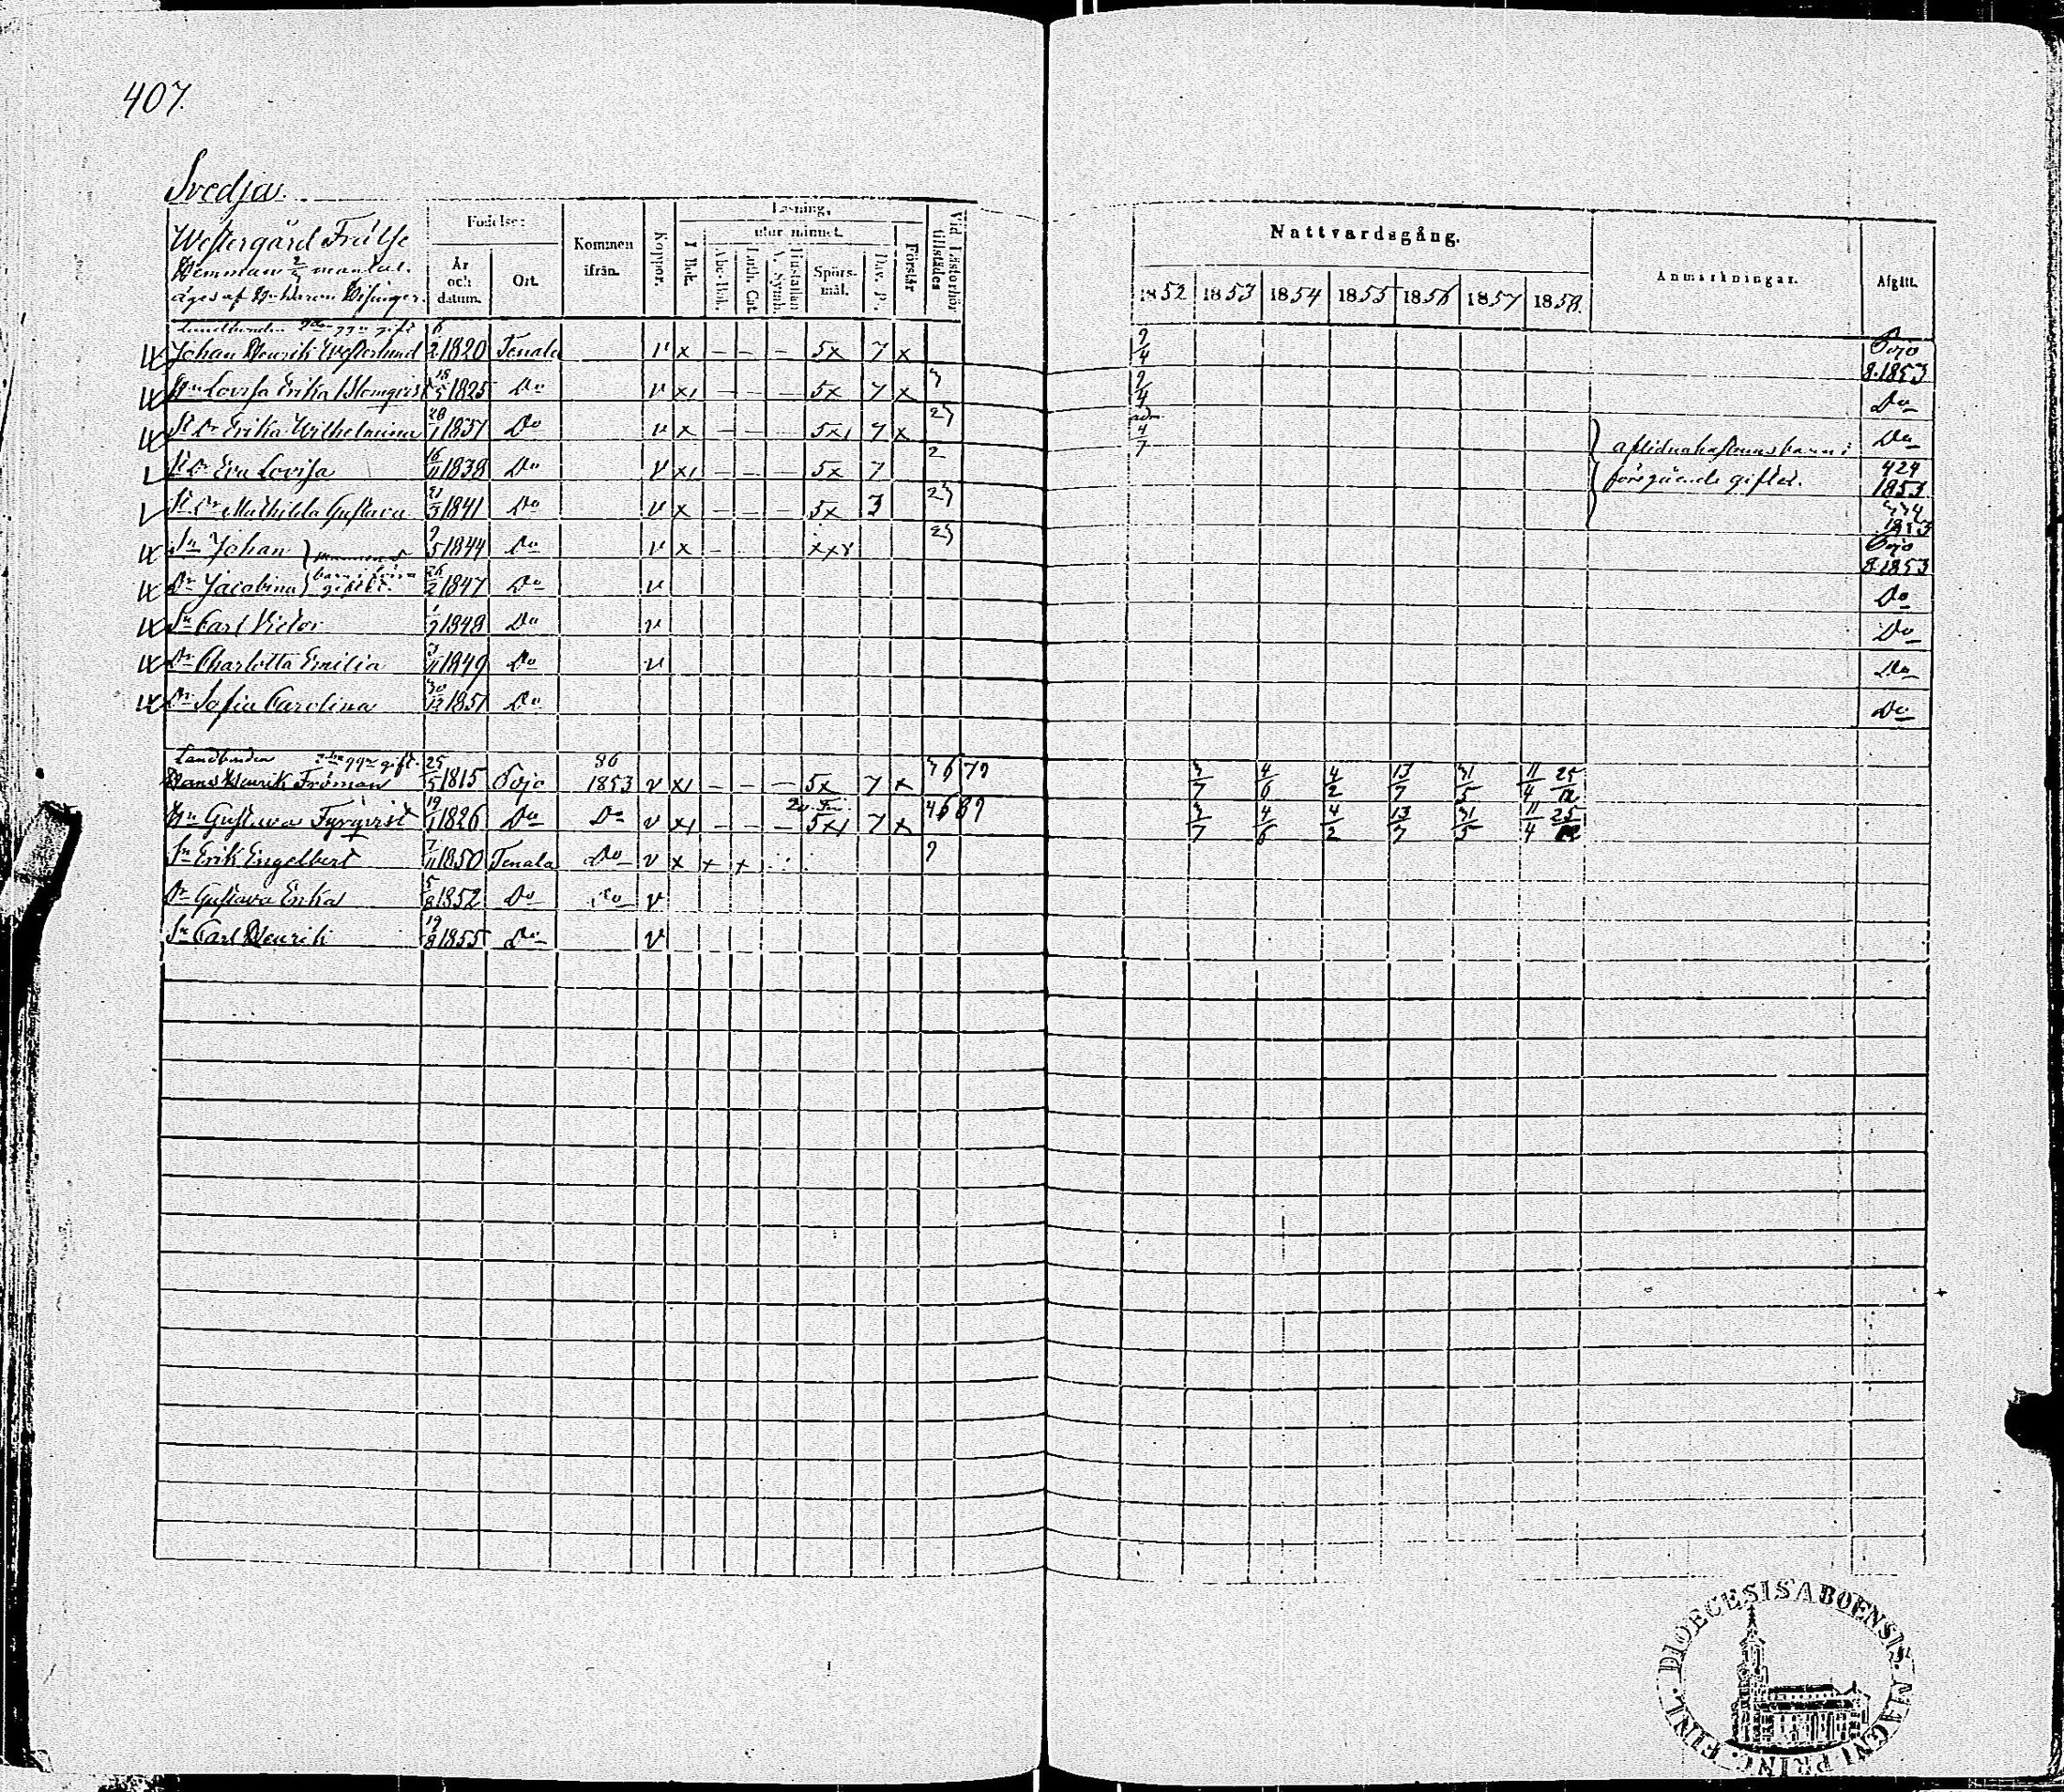 407.
Svedja.
Westergård Frälse
Hemman 2/3 mantal.
äges af
Födelse:
År och datum.
Ort.
Kommen ifrån.
Koppor.
Läsning.
utur minnet.
I Bok.
Abc-Bok.
Luth. Cat.
Hustaflan A. Symb.
Spörs-mål.
Dav. P.
Förstår
Vid Läsförhör tillstädes
Nattvardsgång.
1852 1853 1854 1855 1856 1857 1858.
Anmärkningar.
Afgått.
Landbonden 2dra ggn gift
Johan Henrik Westerlund 6/2 1820 Tenala v x – – – 5x 7 x 9/4 Pojo 8.1853
Hu Lovisa Erika Blomqvist 18/5 1825 Do v x1 – – – 5x 7 x 3 9/4 Do
St Dr Erika Wilhelmina 28/1 1837 Do v x – – – 5x1 7 x 23 adm. 4/7 Do
St Dr Eva Lovisa 16/11 1838 Do v x1 – – – 5x 7 2 424 1853
aflidna hustruns barn i
föregående giftet.
St Dr Mathilda Gustava 21/3 1841 Do v x – – – 5x 3 23 1853
Sn Johan 9/5 1844 Do v x 23 Pojo 8.1853
barn i förra
giftet.
Dr Jacobina 26/2 1847 Do v Do
Sn Carl Victor 1/2 1848 Do v Do
Dr Charlotta Emilia 3/11 1849 Do v Do
Dr Sofia Carolina 30/12 1851 Do Do
Landbonden 2dra ggn gift. 86
Hans Henrik Fröman 25/5 1815 Pojo 1853 v x1 – – – 5x 7 x 3/7 4/6 4/2 13/7 31/5 11/4 25/12
Hu Gustava Fyrqvist 19/1 1826 Do Do v x1 – – – 5x1 7 x 4689 3/7 4/6 4/2 13/7 31/5 11/4 25/12
Sn Erik Engelbert 7/11 1850 Tenala Do v x + + 9
Dr Gustava Erika 5/8 1852 Do Do v
Sn Carl Henrik 19/8 1855 Do v
DIOECESIS ABOENSIS. MAGNI PRINC. FINL.